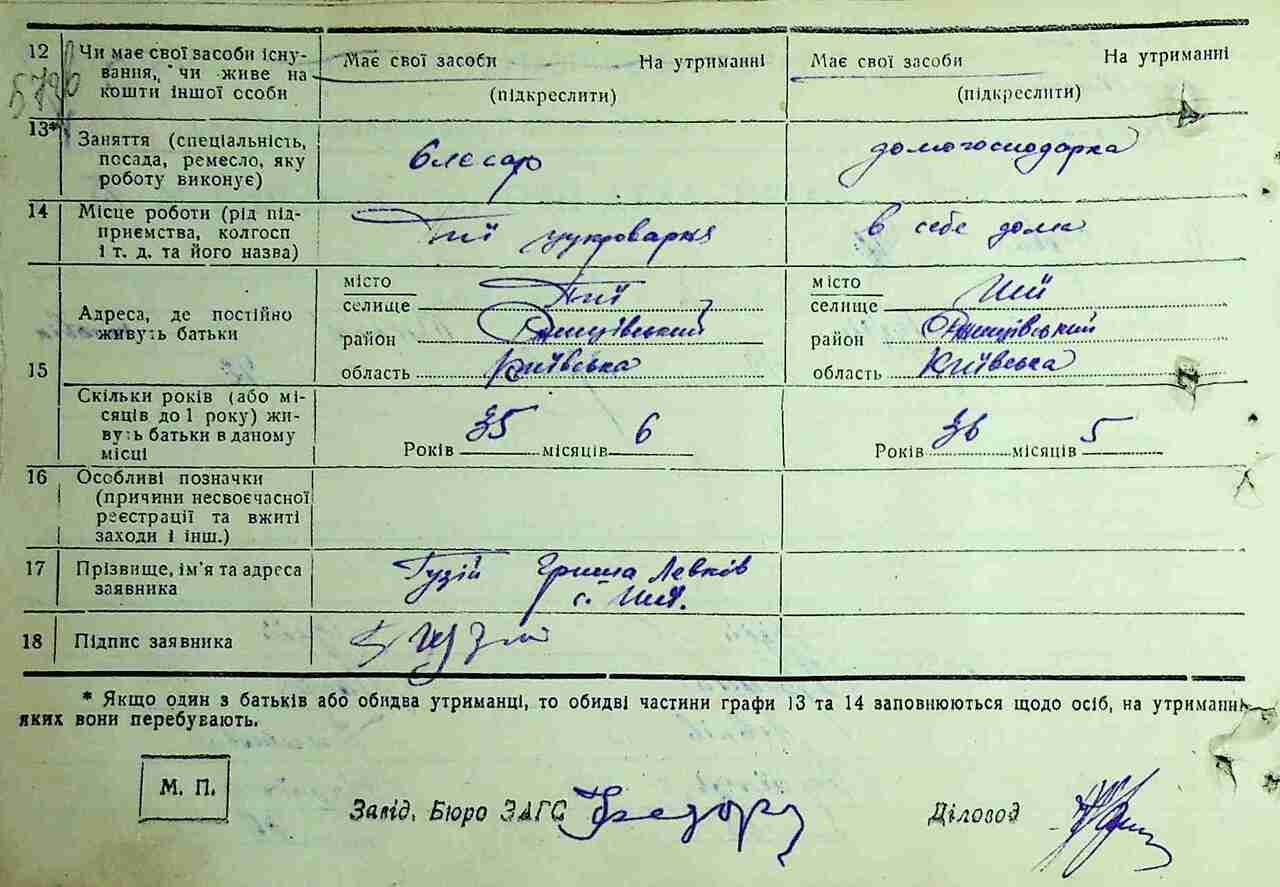 5790
12 Чи має свої засоби існу- Має свої засоби На утриманні Має свої засоби На утриманні
вання, чи живе на
кошти іншої особи (підкреслити) (підкреслити)
13* Заняття (спеціальність,
посада, ремесло, яку слєсар домогосподарка
роботу виконує)
14 Місце роботи (рід під-
приємства, колгосп цукроварня в себе дома
і т. д. та його назва)
місто місто
селище селище
Адреса, де постійно
живуть батьки район район
15 область Київська область Київська
Скільки років (або мі-
сяців до 1 року) жи-
вуть батьки в даному 35 6 36 5
місці Років місяців Років місяців
16 Особливі позначки
(причини несвоєчасної
реєстрації та вжиті
заходи і інш.)
17 Прізвище, ім'я та адреса Гузій Гриша Левків
заявника с.
18 Підпис заявника
* Якщо один з батьків або обидва утриманці, то обидві частини графи 13 та 14 заповнюються щодо осіб, на утриманні
яких вони перебувають.
М. П.
Завід. Бюро ЗАГС Діловод